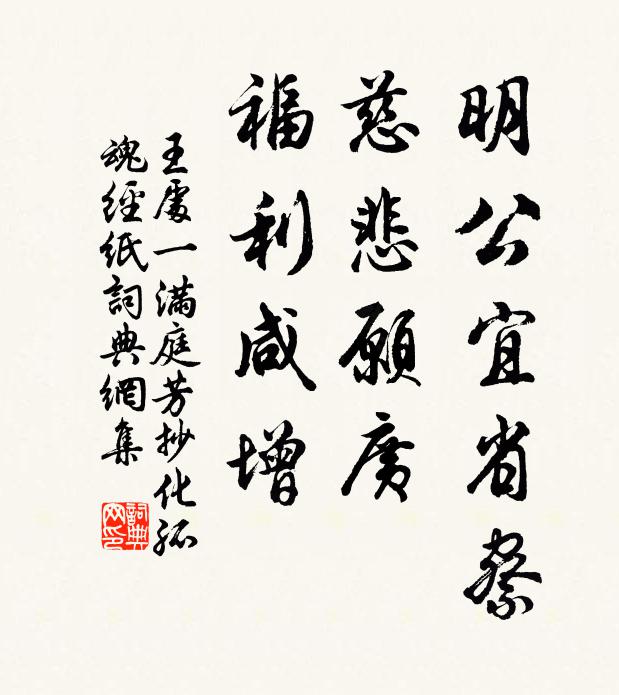 明公宜省察
慈悲願廣
福利咸增
王處一滿庭芳抄化孤
魂經紙詞典網集
詞典
网印